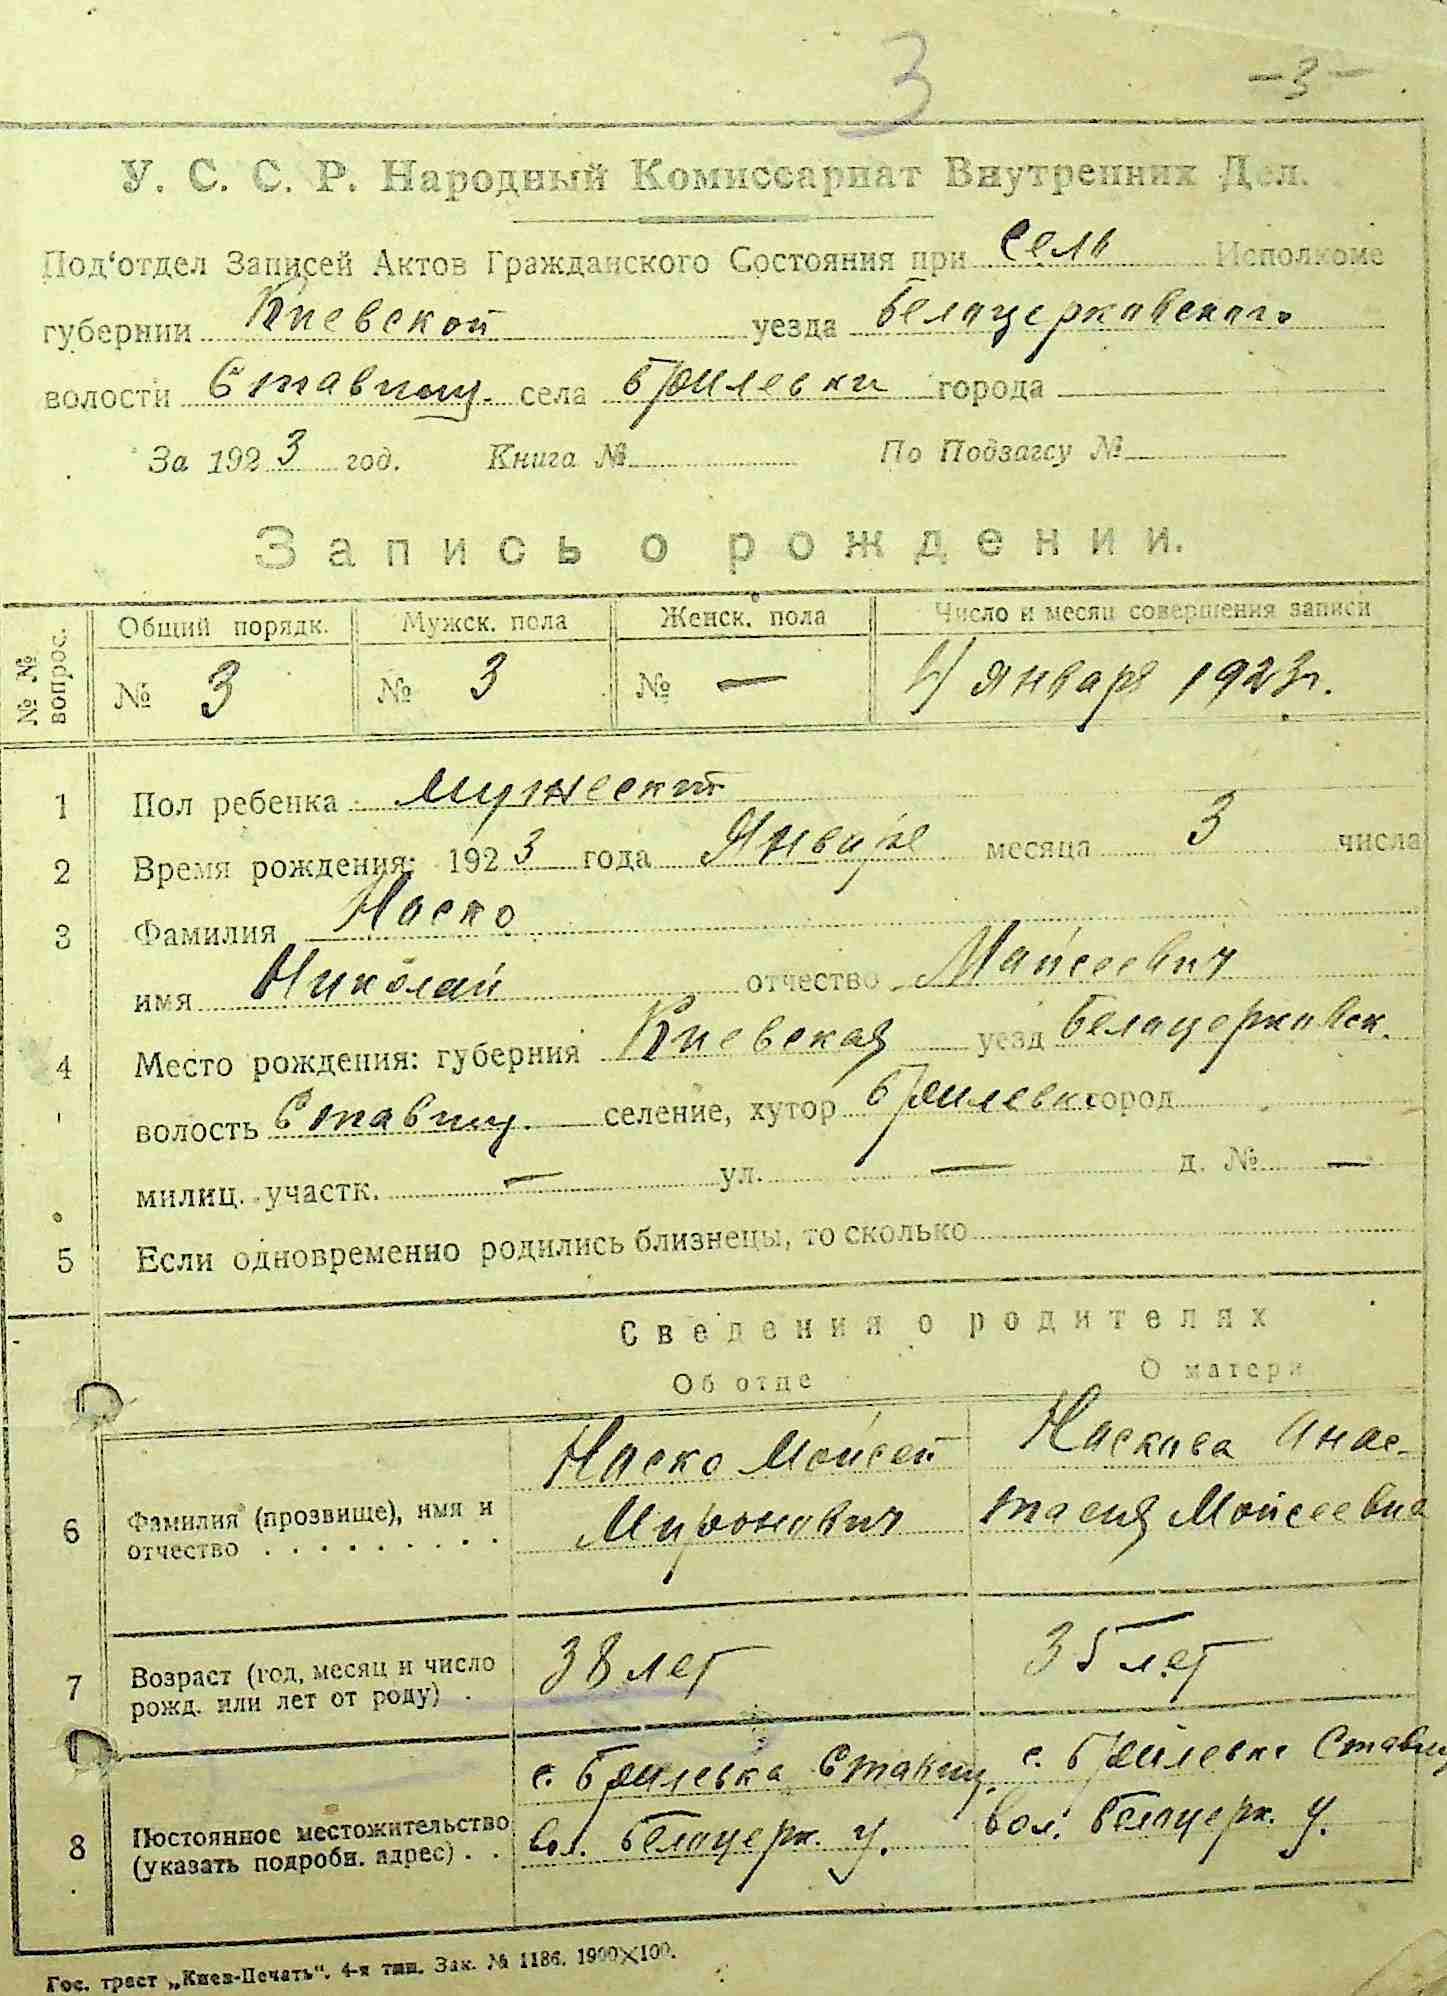 3 -3-
У. С. С. Р. Народный Комиссариат Внутренних Дел.
Под'отдел Записей Актов Гражданского Состояния при сель Исполкоме
губернии Киевской уезда Белоцерковского
волости Ставищ. села Брилевки города
За 1923 год. Книга № По Подзагсу №
Запись о рождении.
№ № вопрос. Общий порядк. Мужск. пола Женск. пола Число и месяц совершения записи
№ 3 № 3 № — 4 января 1923 г.
1 Пол ребенка мужеский
2 Время рождения: 1923 года Января месяца 3 числа
3 Фамилия Наско
имя Николай отчество Мойсеевич
4 Место рождения: губерния Киевская уезд Белоцерковск.
волость Ставищ. селение, хутор Брилевк город
милиц. участк. — ул. — д. № —
5 Если одновременно родились близнецы, то сколько
Сведения о родителях
Об отце О матери
6 Фамилия (прозвище), имя и отчество . . . . . . . . .
Наско Мойсей
Миронович
Наскова Анас-
тасия Мойсеевна
7 Возраст (год, месяц и число рожд. или лет от роду) .
38 лет
35 лет
8 Постоянное местожительство (указать подробн. адрес) . .
с. Брилевка Ставищ.
вол. Белоцерк. у.
с. Брилевка Ставищ
вол. Белоцерк. у.
Гос. трест „Киев-Печать“. 4-я тип. Зак. № 1186. 1900×100.